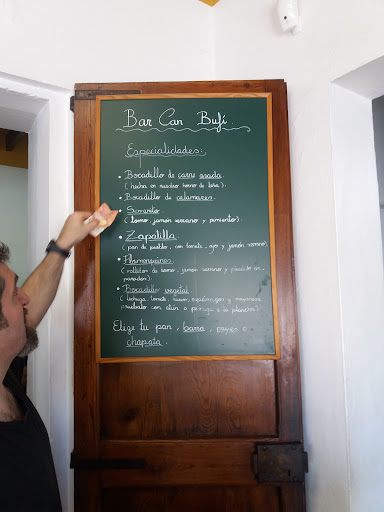 Bar Can Bufí.
Especialidades:
• Bocadillo de carne asada.
(hecha en nuestro horno de leña).
• Bocadillo de calamares.
• Serranito
(lomo, jamón serrano y pimiento).
• Zapatilla.
(pan de pueblo, con tomate, ajo y jamón serrano).
• Flamenquines.
(rollitos de lomo, jamón serrano y
• Bocadillo vegetal
(lechuga, tomate, huevo, espárragos y mayonesa
pruébalo con atún o pavo a la plancha).
Elige tu pan, barra, payés o
chapata.